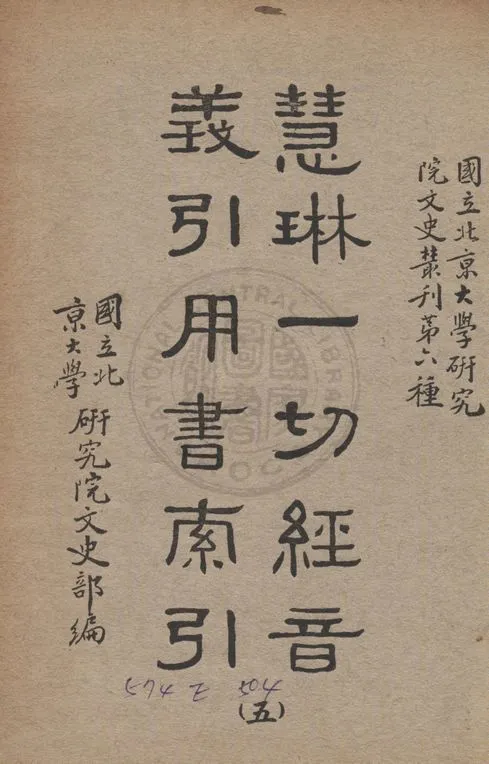 國立北京大學研究
院文史叢刊第六種
慧琳一切經音
義引用書索引
(五)
國立北
京大學
研究院文史部編
NATIONAL CENTRAL LIBRARY